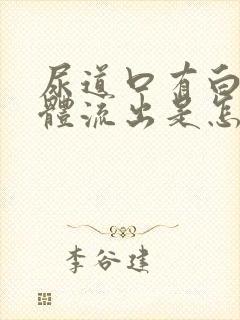 尿道口有白
體流出是怎
李谷建